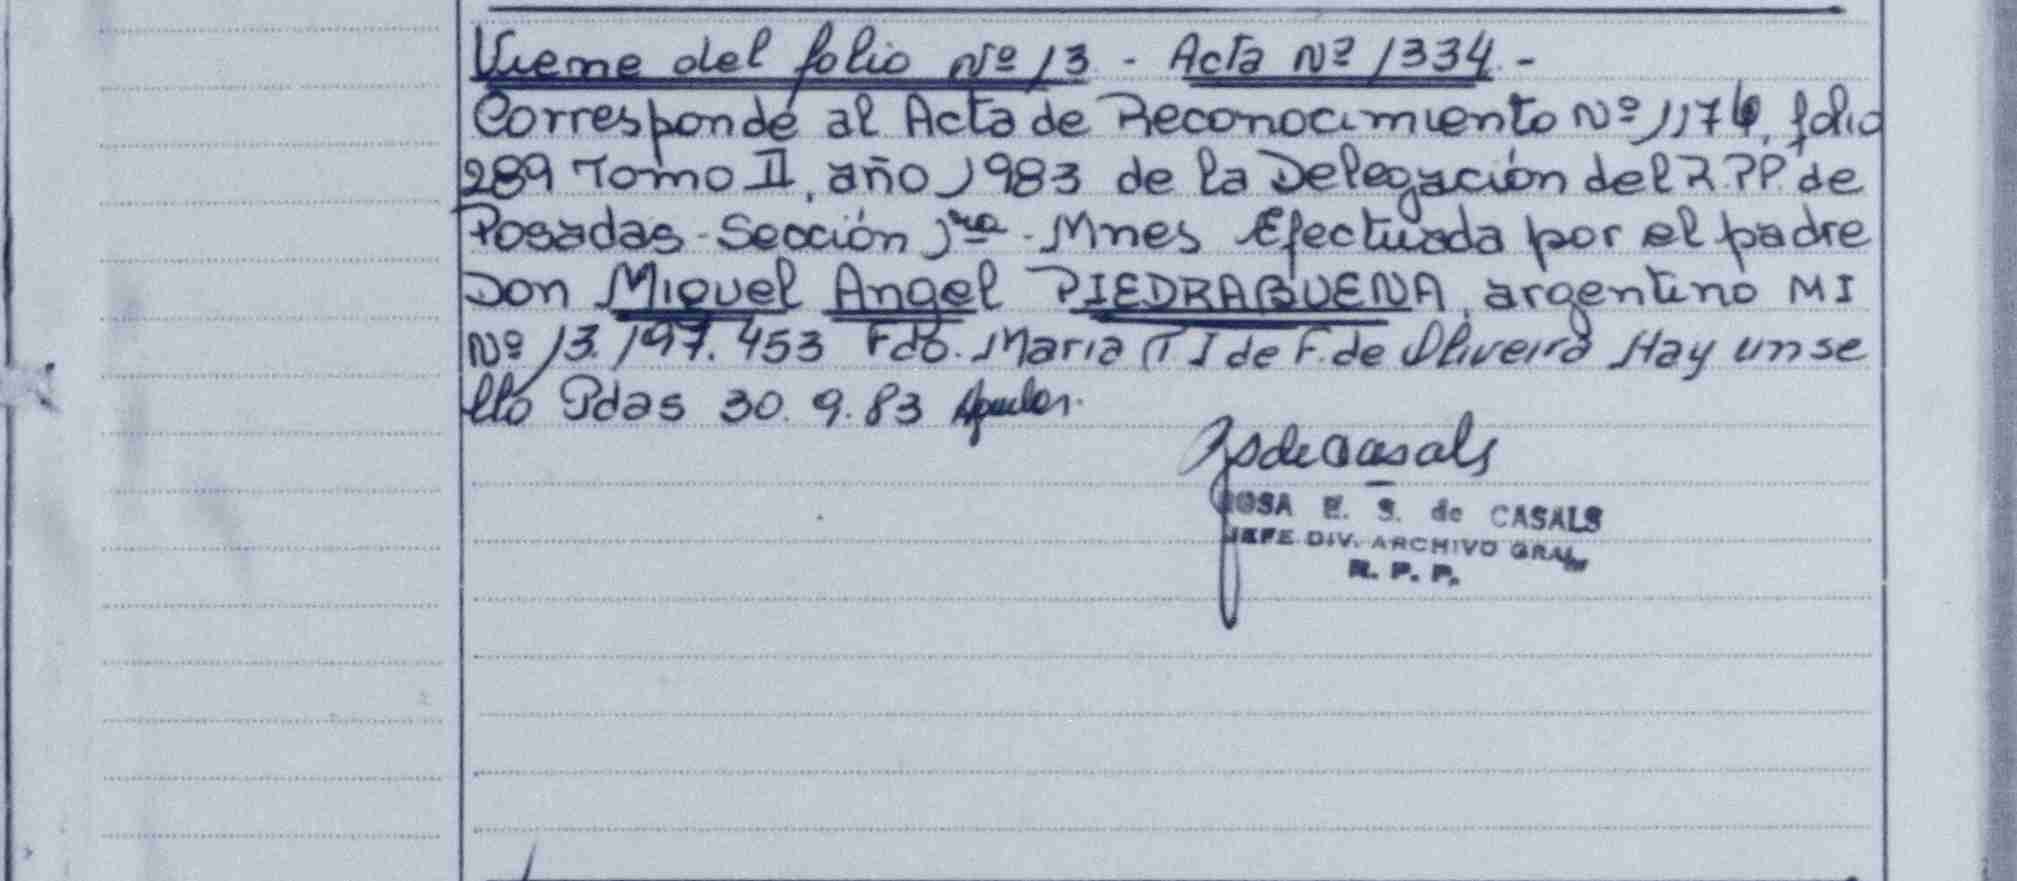 Viene del folio Nº 13 - Acta Nº 1334.-
Corresponde al Acta de Reconocimiento Nº folio
289 Tomo II, año 1983 de la Delegación del R.PP. de
Posadas - Sección 1ra - Mnes Efectuada por el padre
Don Miguel Angel PIEDRABUENA, argentino MI
Nº 13.197.453 Fdo. Maria T I de F. de Oliveira Hay un se
llo Pdas 30.9.83
ROSA E. S. de CASALS
JEFE DIV. ARCHIVO GRAL
R. P. P.